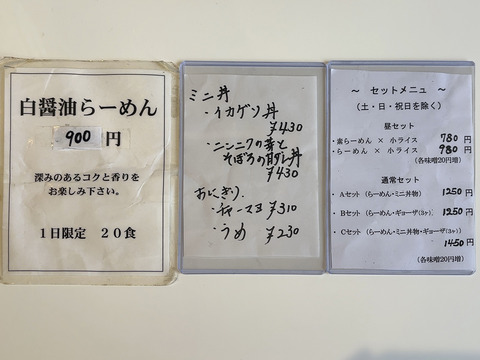 白醤油らーめん
900 円
深みのあるコクと香りを
お楽しみ下さい。
1日限定 20食
ミニ丼
・イカゲソ丼
¥430
・ニンニクの芽と
そぼろの 丼
¥430
おにぎり
・チャーマヨ ¥310
・うめ ¥230
~ セットメニュー ~
(土・日・祝日を除く)
昼セット
・素らーめん × 小ライス 780円
・らーめん × 小ライス 980円
(各味噌20円増)
通常セット
・Aセット(らーめん・ミニ丼物) 1250円
・Bセット(らーめん・ギョーザ(3ヶ) 1250円
・Cセット(らーめん・ミニ丼物・ギョーザ(3ヶ)
1450円
(各味噌20円増)